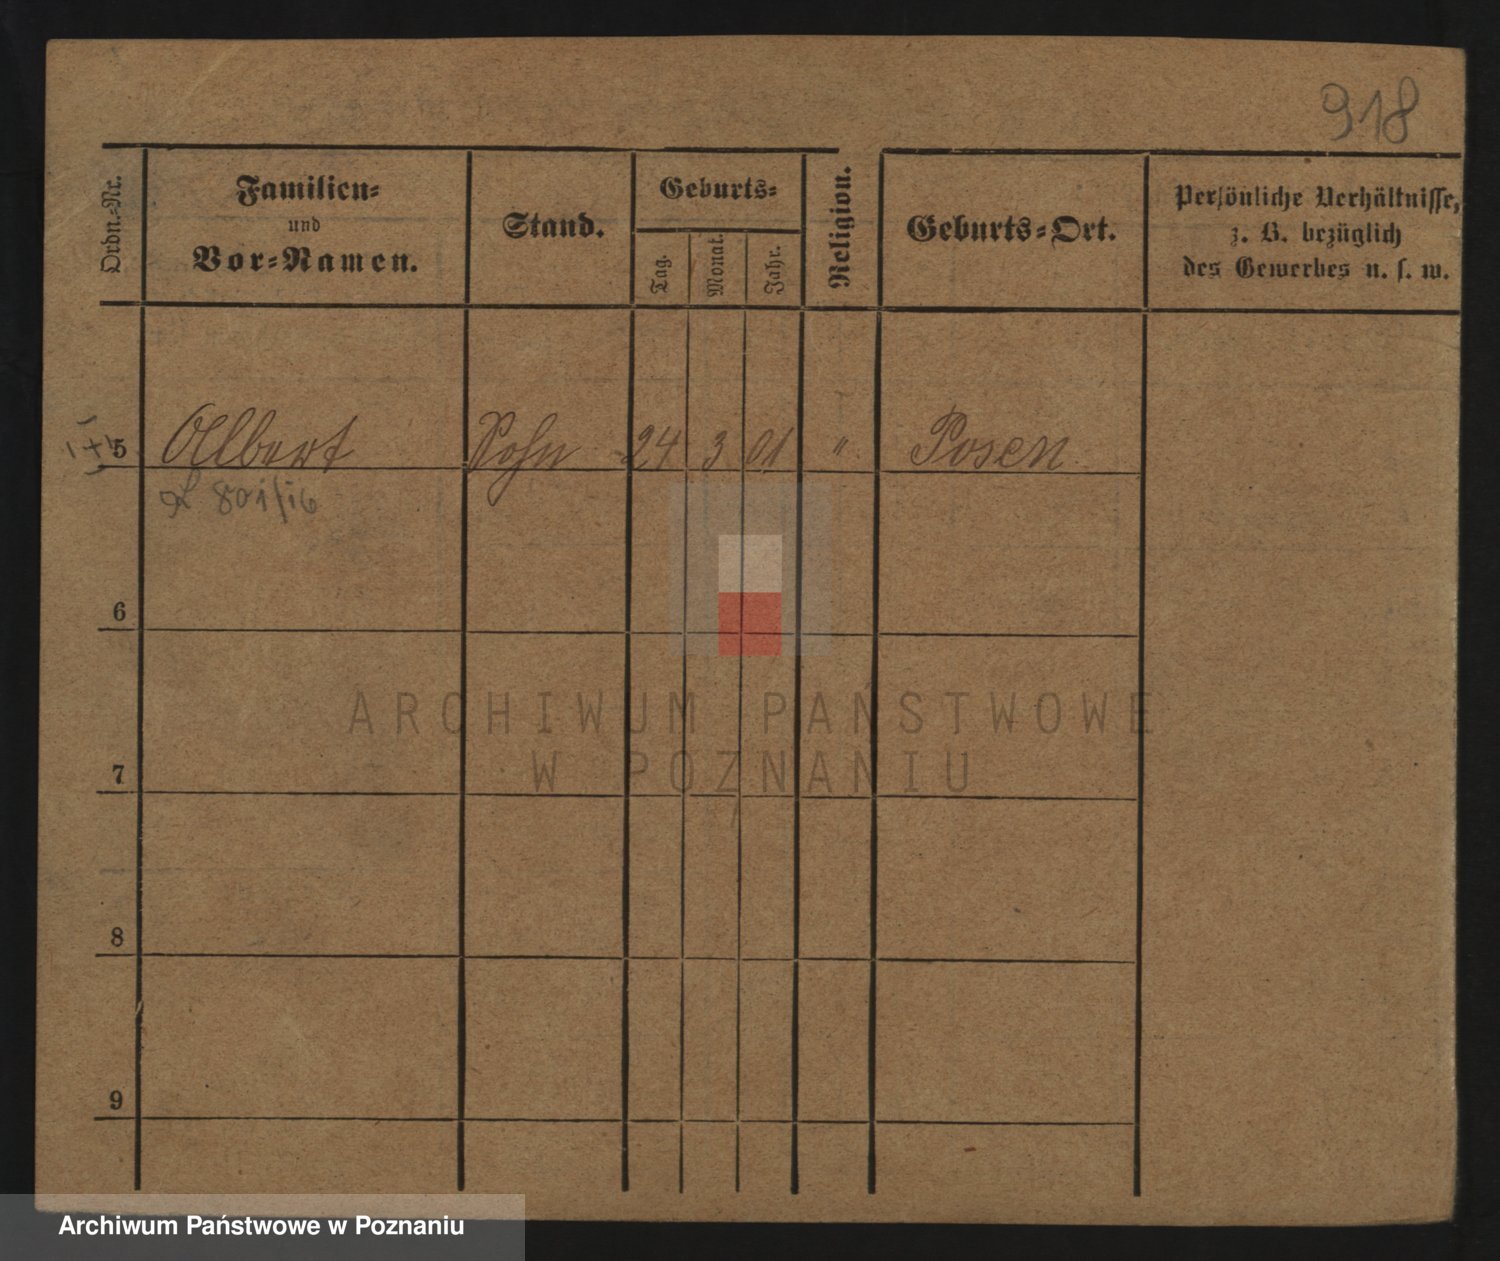 918
Ordn.-Nr.
Familien-
und
Vor-Namen.
Stand.
Geburts-
Tag.
Monat.
Jahr.
Religion.
Geburts-Ort.
Persönliche Verhältnisse,
z. B. bezüglich
des Gewerbes u. s. w.
5 Albert Sohn 24 3 01 " Posen
801/16
6
7
8
9
ARCHIWUM PAŃSTWOWE
W POZNANIU
Archiwum Państwowe w Poznaniu